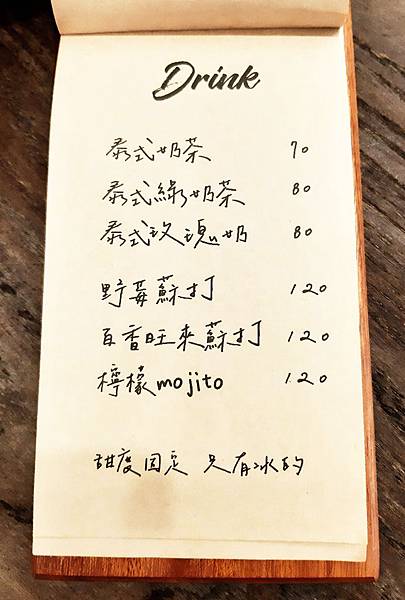 Drink
泰式奶茶 70
泰式綠奶茶 80
泰式玫瑰奶 80
野莓蘇打 120
百香旺來蘇打 120
檸檬mojito 120
甜度固定 只有冰的